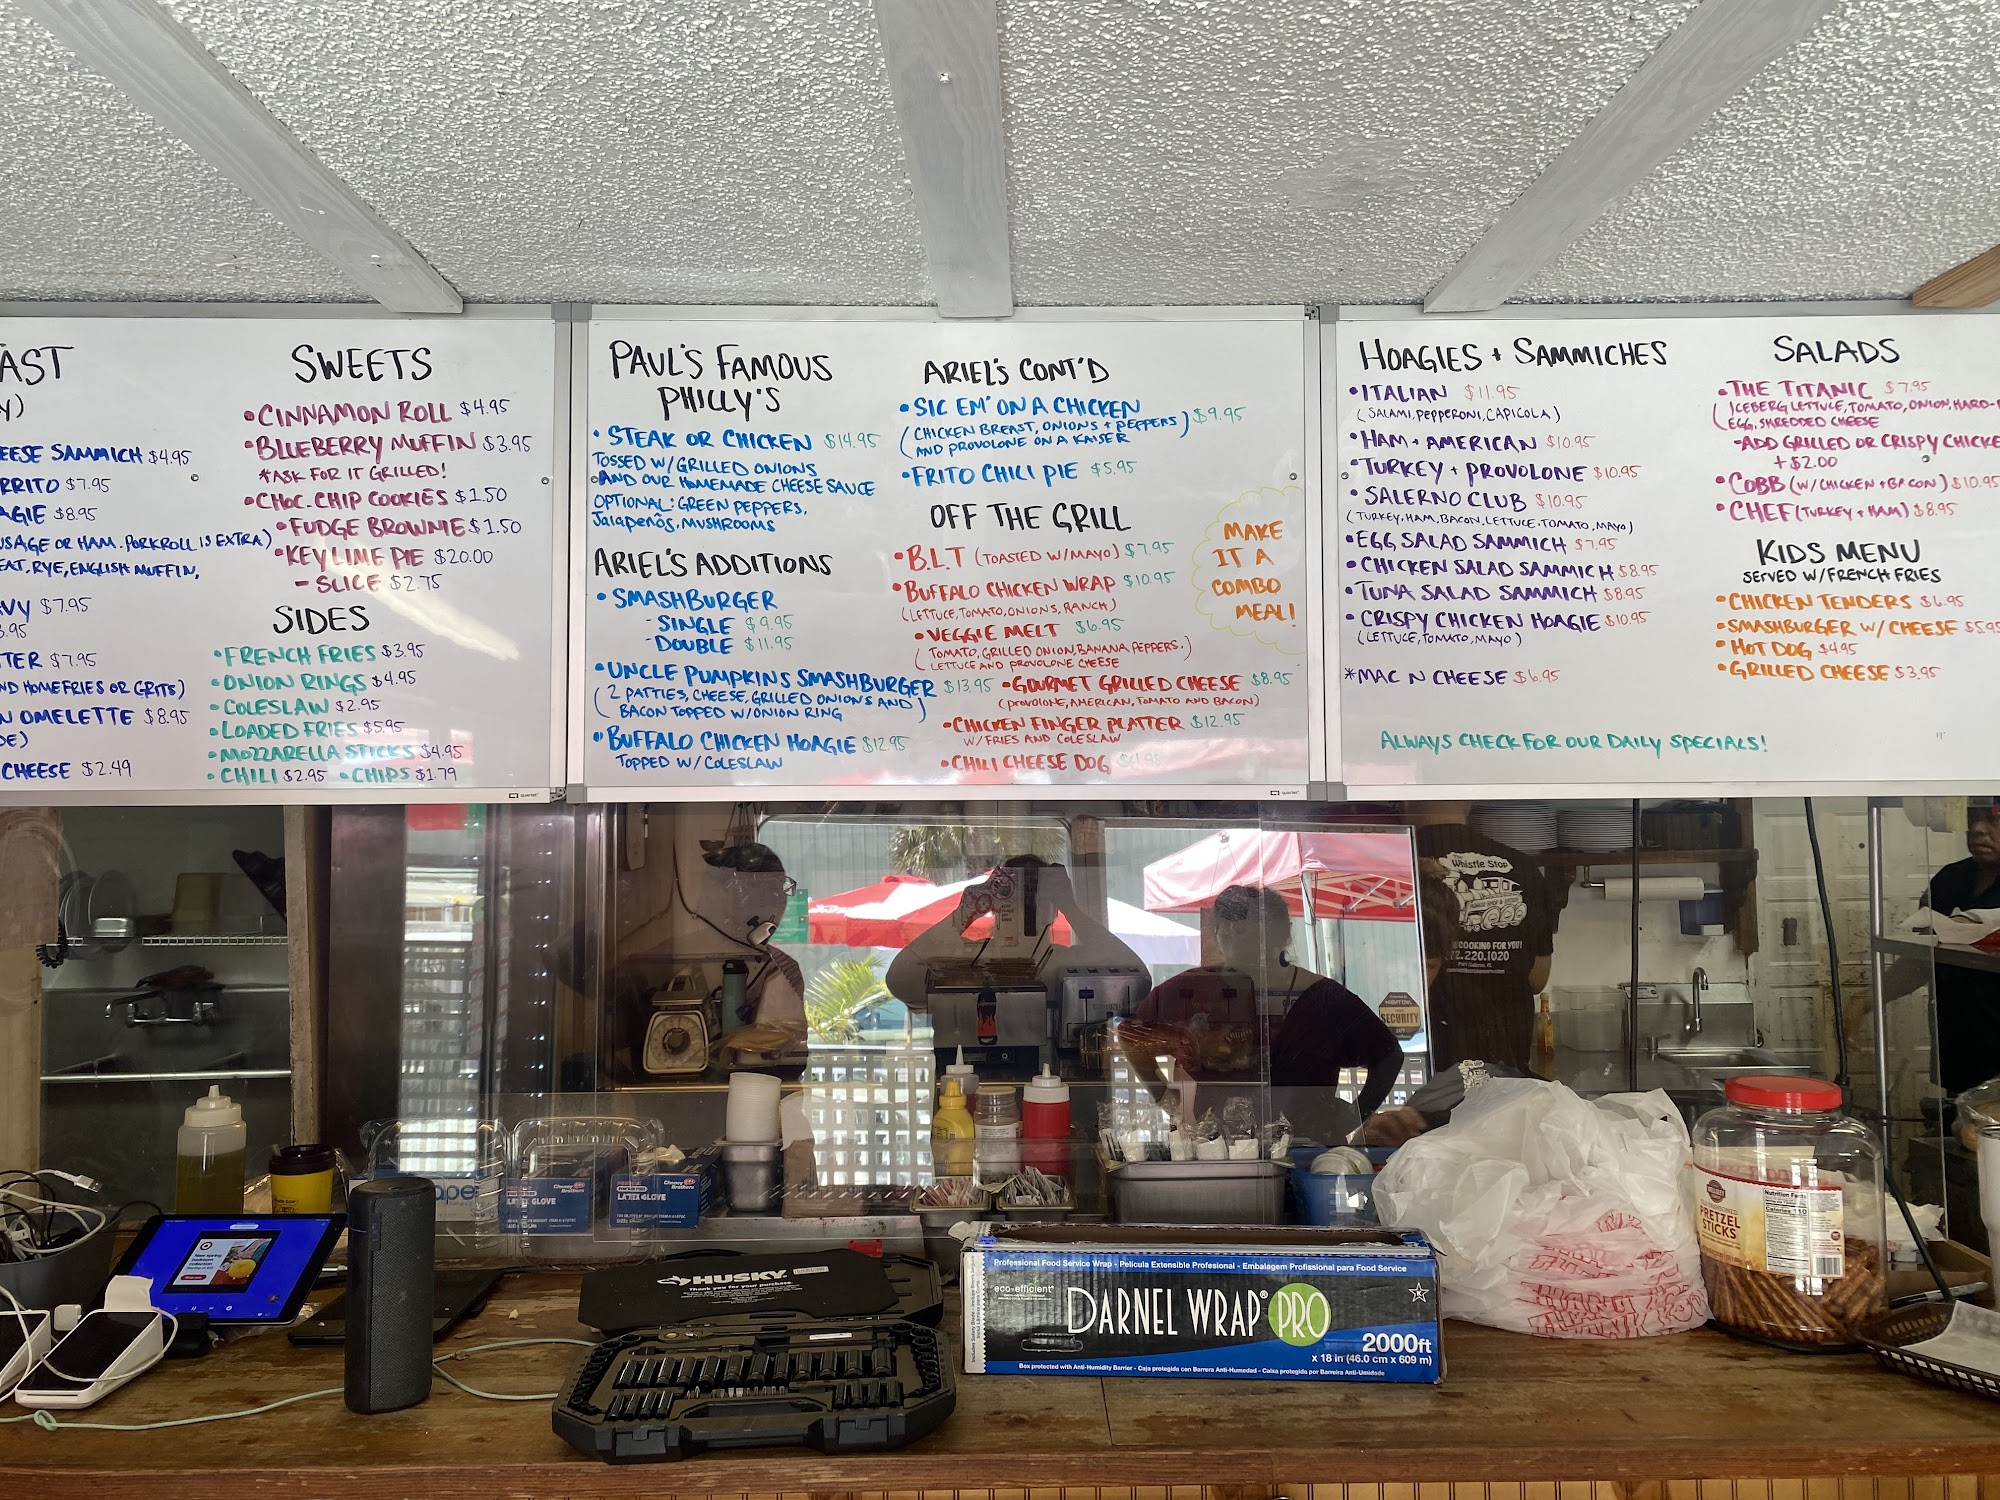 AST
Y)
EESE SAMMICH $4.95
RRITO $7.95
AGIE $8.95
USAGE OR HAM. PORKROLL IS EXTRA)
EAT, RYE, ENGLISH MUFFIN,
VY $7.95
3.95
TTER $7.95
ND HOMEFRIES OR GRITS)
N OMELETTE $8.95
DE)
CHEESE $2.49
SWEETS
•CINNAMON ROLL $4.95
•BLUEBERRY MUFFIN $3.95
*ASK FOR IT GRILLED!
•CHOC. CHIP COOKIES $1.50
•FUDGE BROWNIE $1.50
•KEY LIME PIE $20.00
- SLICE $2.75
SIDES
•FRENCH FRIES $3.95
•ONION RINGS $4.95
•COLESLAW $2.95
•LOADED FRIES $5.95
•MOZZARELLA STICKS $4.95
•CHILI $2.95 •CHIPS $1.79
PAUL'S FAMOUS
PHILLY'S
•STEAK OR CHICKEN $14.95
TOSSED W/GRILLED ONIONS
AND OUR HOMEMADE CHEESE SAUCE
OPTIONAL: GREEN PEPPERS,
Jalapeños, MUSHROOMS
ARIEL'S ADDITIONS
•SMASHBURGER
-SINGLE $9.95
-DOUBLE $11.95
•UNCLE PUMPKINS SMASHBURGER $13.95
(2 PATTIES, CHEESE, GRILLED ONIONS AND
BACON TOPPED W/ONION RING)
•BUFFALO CHICKEN HOAGIE $12.95
TOPPED W/ COLESLAW
ARIEL'S CONT'D
•SIC EM' ON A CHICKEN $9.95
(CHICKEN BREAST, ONIONS + PEPPERS
AND PROVOLONE ON A KAISER)
•FRITO CHILI PIE $5.95
OFF THE GRILL
•B.L.T (TOASTED W/MAYO) $7.95
•BUFFALO CHICKEN WRAP $10.95
(LETTUCE, TOMATO, ONIONS, RANCH)
•VEGGIE MELT $6.95
(TOMATO, GRILLED ONION, BANANA PEPPERS,
LETTUCE AND PROVOLONE CHEESE)
•GOURMET GRILLED CHEESE $8.95
(PROVOLONE, AMERICAN, TOMATO AND BACON)
•CHICKEN FINGER PLATTER $12.95
W/FRIES AND COLESLAW
•CHILI CHEESE DOG
MAKE
IT A
COMBO
MEAL!
HOAGIES + SAMMICHES
•ITALIAN $11.95
(SALAMI, PEPPERONI, CAPICOLA)
•HAM + AMERICAN $10.95
•TURKEY + PROVOLONE $10.95
•SALERNO CLUB $10.95
(TURKEY, HAM, BACON, LETTUCE, TOMATO, MAYO)
•EGG SALAD SAMMICH $7.95
•CHICKEN SALAD SAMMICH $8.95
•TUNA SALAD SAMMICH $8.95
•CRISPY CHICKEN HOAGIE $10.95
(LETTUCE, TOMATO, MAYO)
*MAC N CHEESE $6.95
ALWAYS CHECK FOR OUR DAILY SPECIALS!
SALADS
•THE TITANIC $7.95
(ICEBERG LETTUCE, TOMATO, ONION, HARD-
EGG, SHREDDED CHEESE
-ADD GRILLED OR CRISPY CHICKE
+ $2.00
•COBB (W/CHICKEN + BACON) $10.95
•CHEF (TURKEY + HAM) $8.95
KIDS MENU
SERVED W/FRENCH FRIES
•CHICKEN TENDERS $6.95
•SMASHBURGER W/ CHEESE $5.95
•HOT DOG $4.95
•GRILLED CHEESE $3.95
quartet
quartet
The
Whistle Stop
COOKING FOR YOU!
72.220.1020
SECURITY
LATEX GLOVE
LATEX GLOVE
HUSKY
Thank you for your purchase.
Professional Food Service Wrap - Película Extensible Profesional - Embalagem Profissional para Food Service
eco-efficient
DARNEL WRAP® PRO
2000ft
x 18 in (46.0 cm x 609 m)
Box protected with Anti-Humidity Barrier - Caja protegida con Barrera Anti-Humedad - Caixa protegida por Barreira Anti-Umidade
THANK YOU
PRETZEL
STICKS
Nutrition Facts
Calories 110